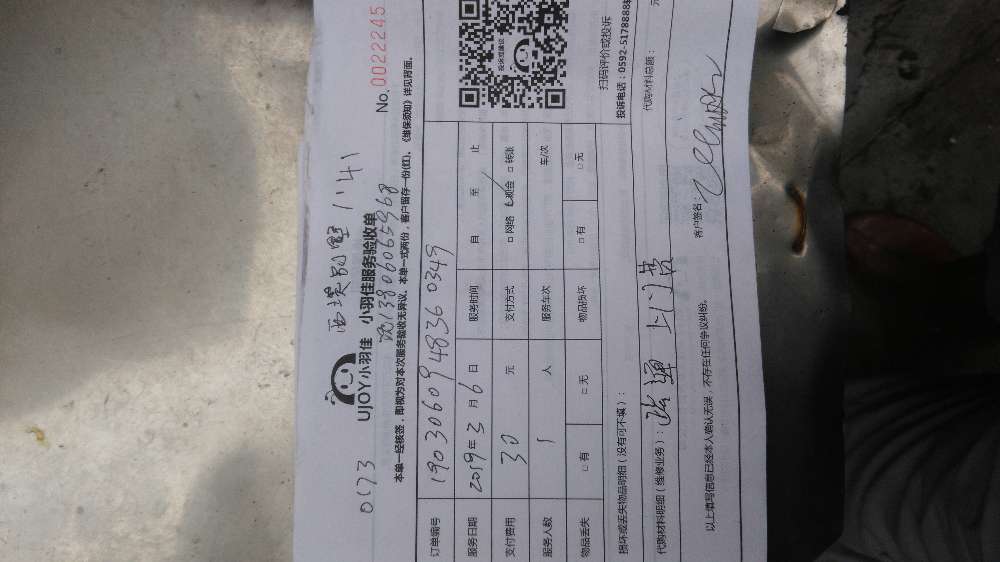 0173
1'41
UJOY小羽佳 小羽佳服务验收单
No.0002245
13806065968
本单一经核签，即视为对本次服务验收无异议。本单一式两份，客户留存一份(红)。《维保须知》详见背面。
订单编号 1903060948360349
服务日期 2019年3月6日 服务时间 自 至 止
支付费用 30 元 支付方式 □ 网络 ☑ 现金 □ 转账
服务人数 1 人 服务车次 车/次
物品丢失 □ 有 □ 无 物品损坏 □ 有 □ 无
投诉或建议
扫码评价或投诉
投诉电话：0592-5178888转
损坏或丢失物品明细（没有可不填）：
代购材料明细（维修业务）： 上门费 代购材料总额： 元
以上填写信息已经本人确认无误，不存在任何争议纠纷。 客户签名：